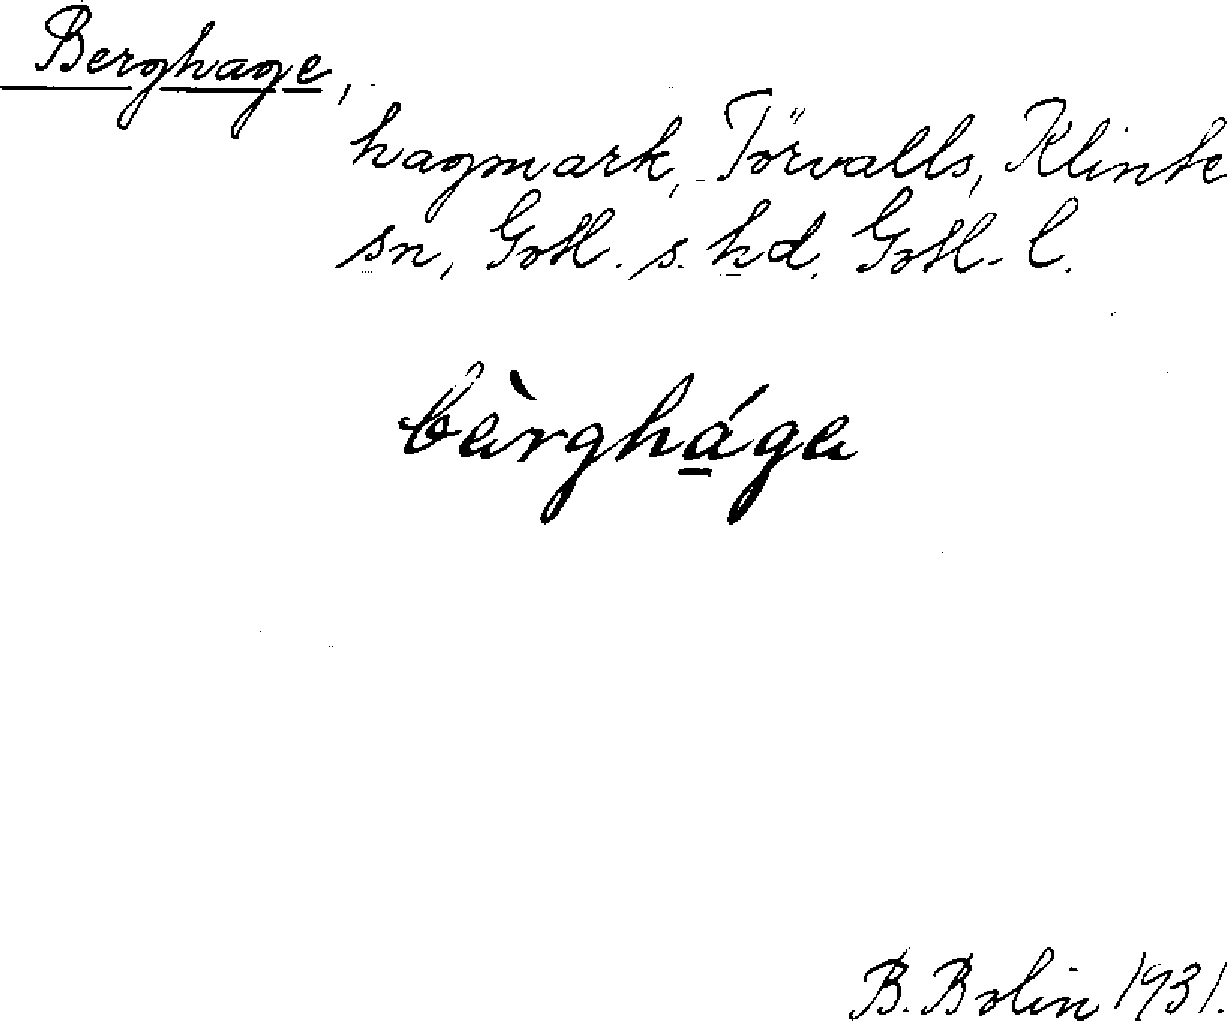 Berghage,
hagmark, Törvalls, Klinte
sn, Gotl. s. hd. Gotl. l.
bàrghága
B. Bolin 1931.